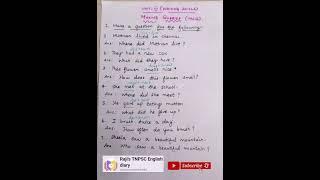 Unit-9 (Writing Skills)
Making Queries (TNCQ)
1. Make a question for the following:
1. Mohan lived in chennai.
Ans: Where did Mohan live?
2. They had a new car
Ans: What did they have?
3. This flower smells nice.
Ans: How does this flower smell?
4. She met at the school.
Ans: Where did she meet?
5. He gave up eating mutton
Ans: What did he give up?
6. I brush twice a day.
Ans: How often do you brush?
7. Sheela saw a beautiful mountain.
Ans: Who saw a beautiful mountain?
Raji's TNPSC English
diary
Subscribe